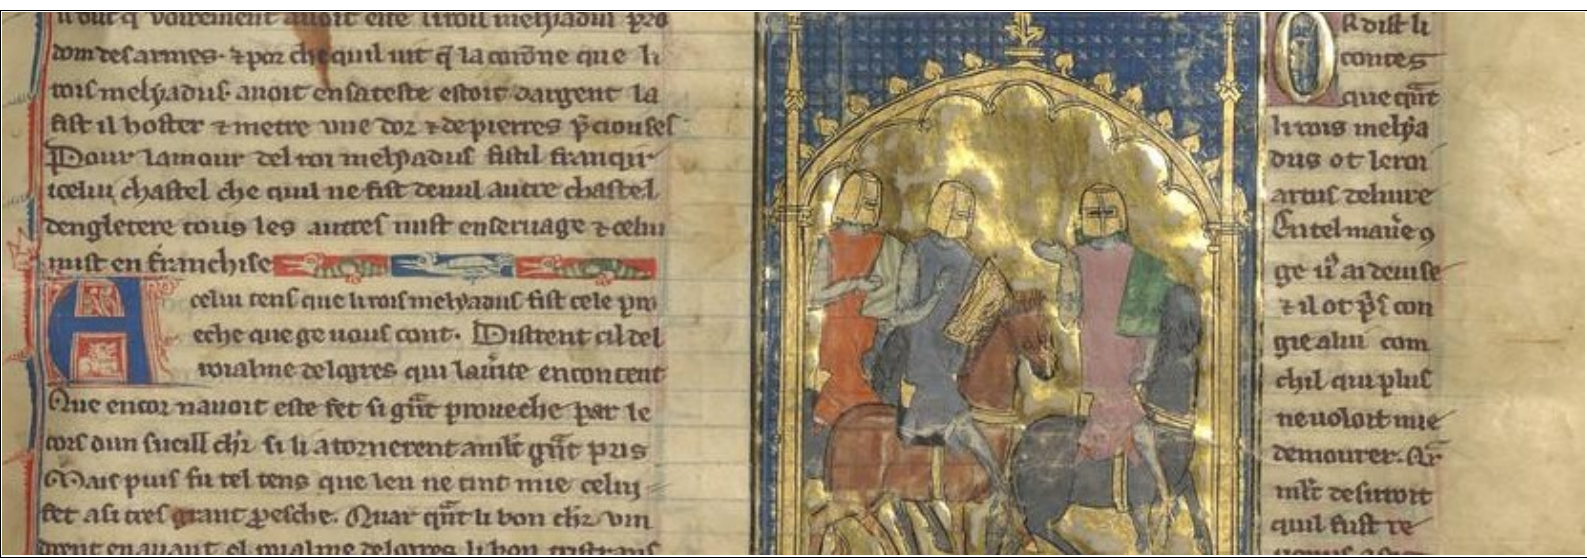 dom des armes. ⁊ por che quil uit q̄ la corōne que li
rois melyadus auoit en sa teste estoit dargent la
fist il hoster ⁊ metre vne dor ⁊ de pierres p̄ciouses
Pour lamour del roi melyadus fist il franquir
icelui chastel che quil ne fist deuul autre chastel
dengletere tous les autres mist en seruage ⁊ celui
mist en franchise
A celui tens que li rois melyadus fist cele pro
eche que ge uous cont. Distrent cil del
roialme delogres qui lau'ite en content
Que encor nauoit este fet si gn̄t proueche par le
cors dun sueill ch'r si li atornerent a mlt gn̄t pris
Mais puis fu tel tens que leu ne tint mie celui
fet a si tres grant pesche. Quar qn̄t li bon ch'r vin
drent en auant el roialme delogres li bon tristrans
Or dist li
contes
que qn̄t
li rois melya
dus ot le roi
artus deliure
En tel manie'
ge u' ai deuise
⁊ il ot p's con
gie a lui com
chil qui plus
ne uoloit mie
demourer. Ar
mlt desirroit
quil fust re